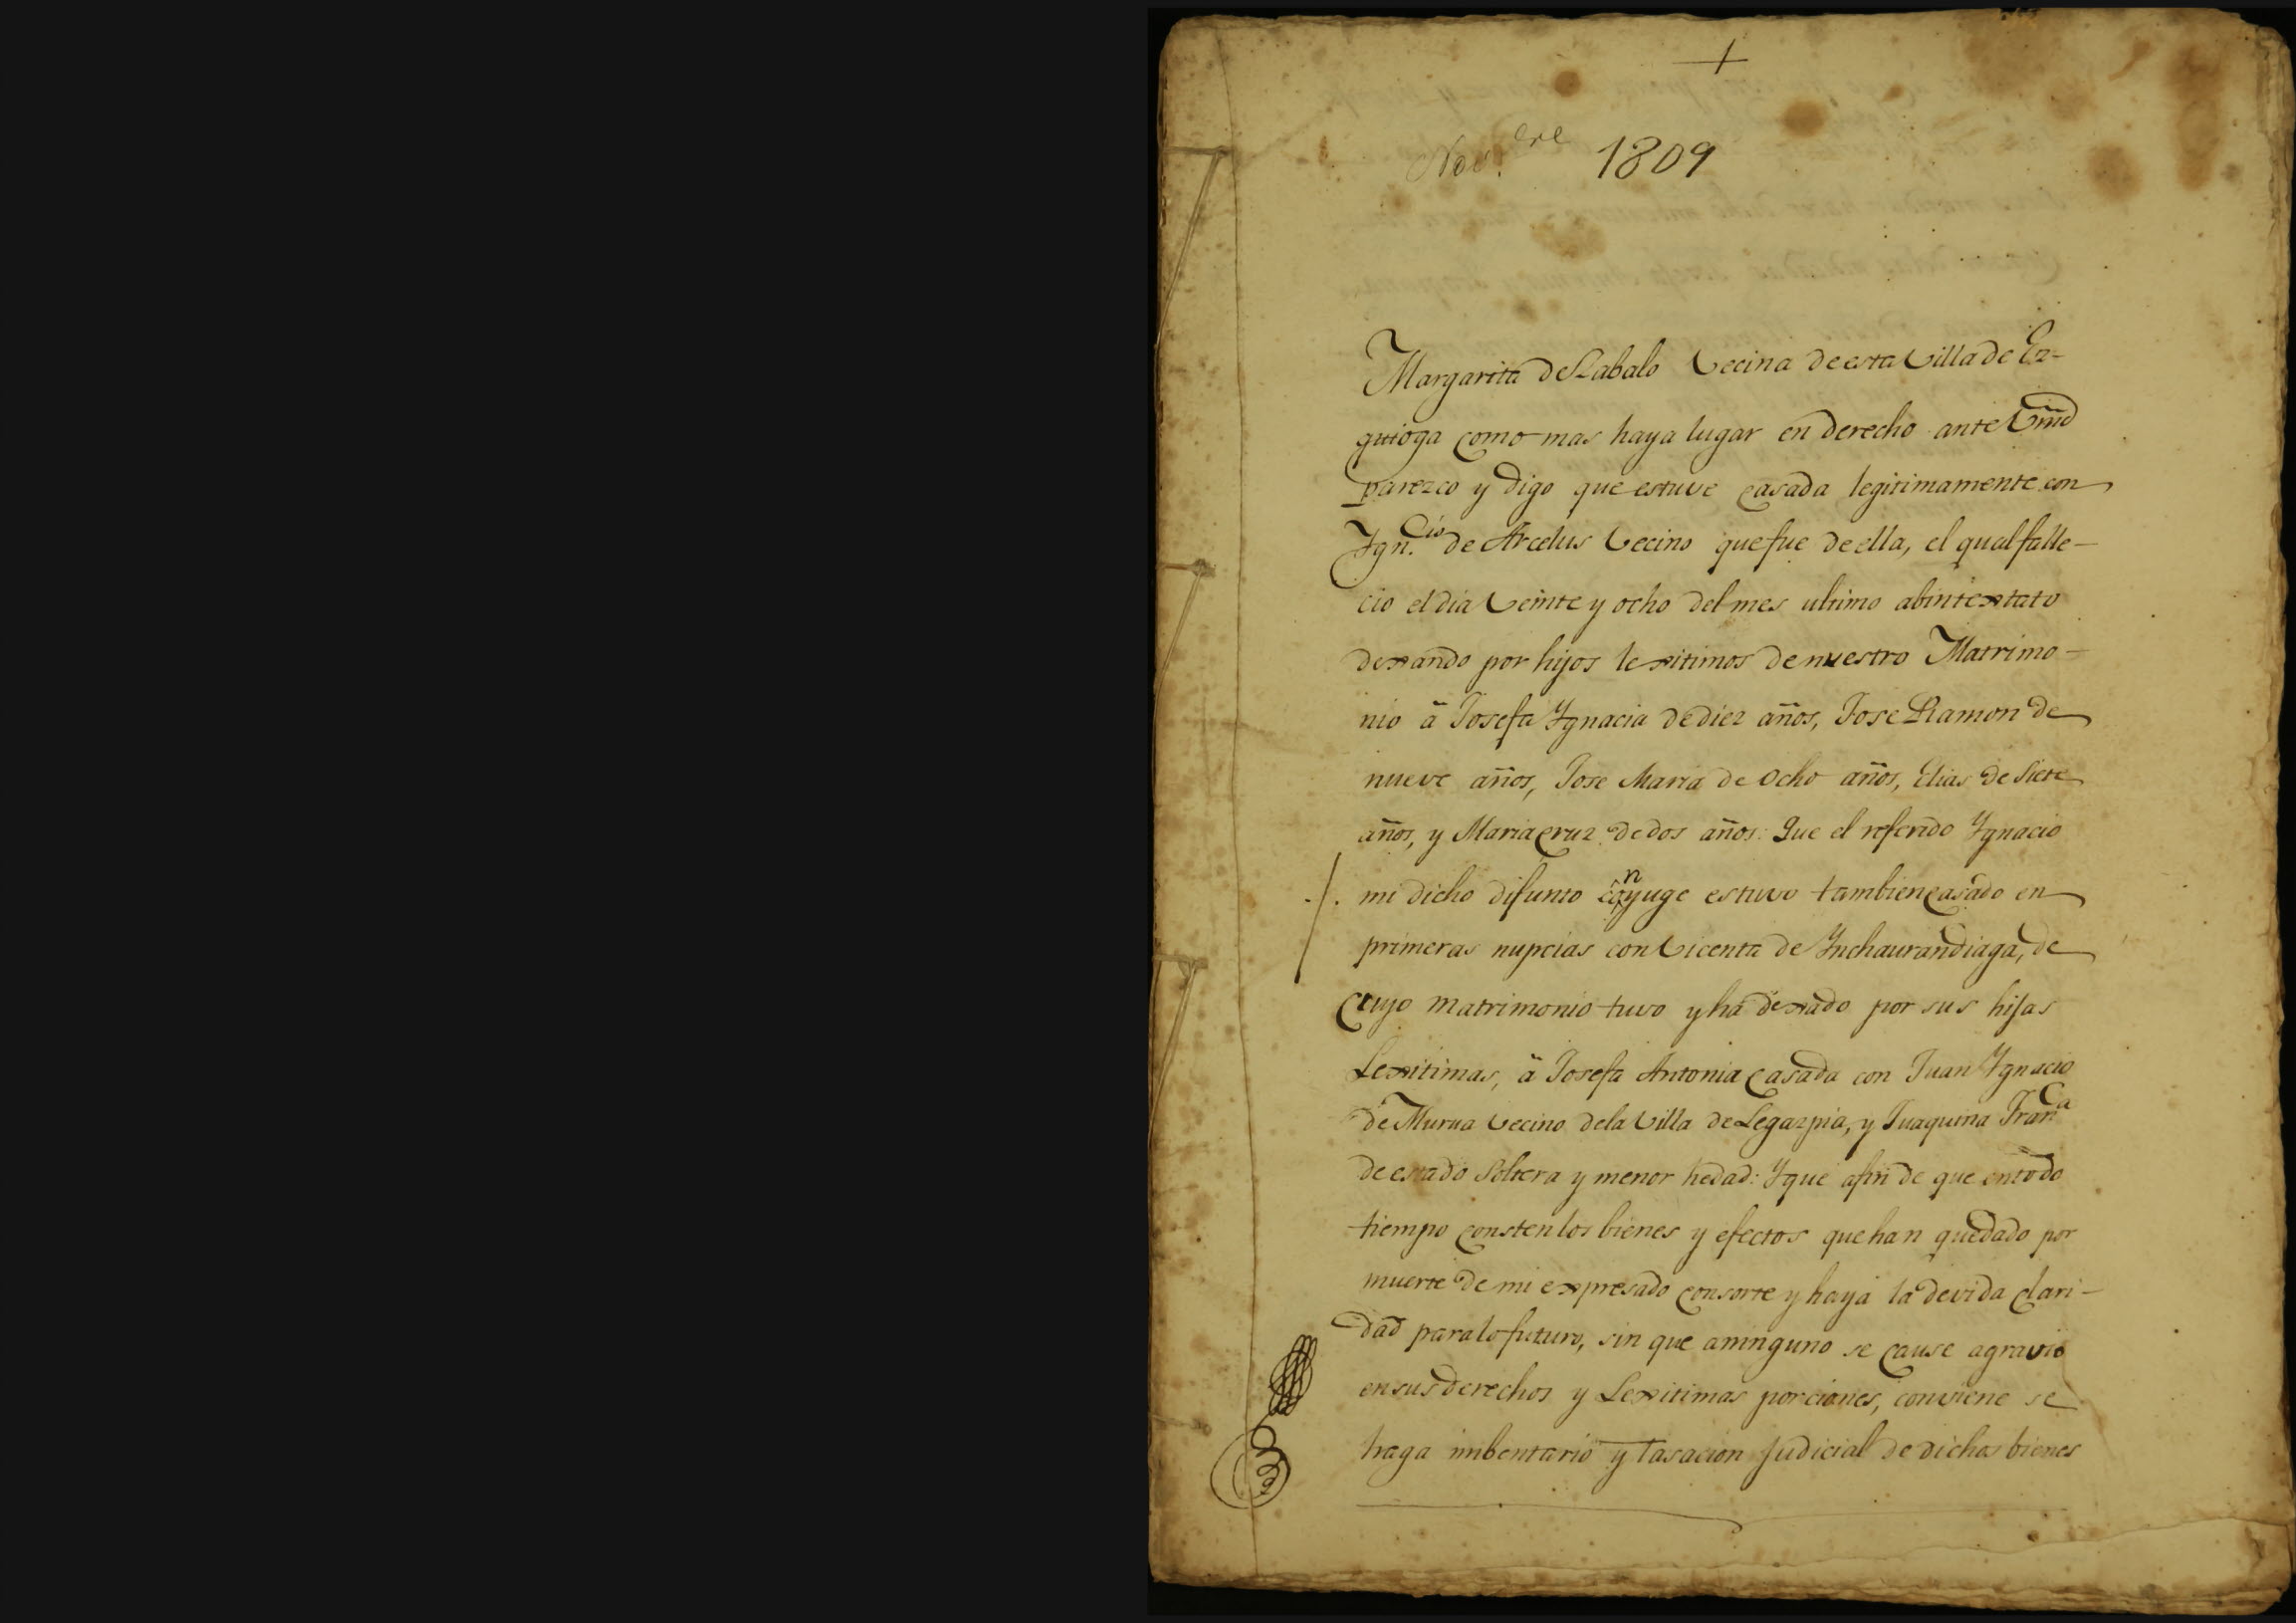 +
Nov.bre 1809
Margarita de Zabalo Vecina de esta Villa de Ez-
quioga como mas haya lugar en derecho ante Vmd
parezco y digo que estuve casada legitimamente con
Ygn.cio de Arcelus Vecino que fue de ella, el qual falle-
cio el dia Veinte y ocho del mes ultimo abintextato
dexando por hijos lexitimos de nuestro Matrimo-
nio â Josefa Ygnacia de diez años, Jose Ramon de
nueve años, Jose Maria de Ocho años, Elias de Siete
años, y Maria Cruz de dos años: Que el referido Ygnacio
mi dicho difunto conyuge estuvo tambien casado en
primeras nupcias con Vicenta de Ynchaurandiaga, de
cuyo matrimonio tuvo y ha dexado por sus hijas
Lexitimas, â Josefa Antonia casada con Juan Ygnacio
de Murua Vecino dela Villa de Legazpia, y Juaquina Franca
de estado Soltera y menor hedad: Y que afin de que entodo
tiempo consten los bienes y efectos que han quedado por
muerte de mi expresado consorte y haya la devida clari-
dad para lo futuro, sin que aninguno se cause agravio
en sus derechos y Lexitimas porciones, conviene se
haga imbentario y tasacion Judicial de dichos bienes